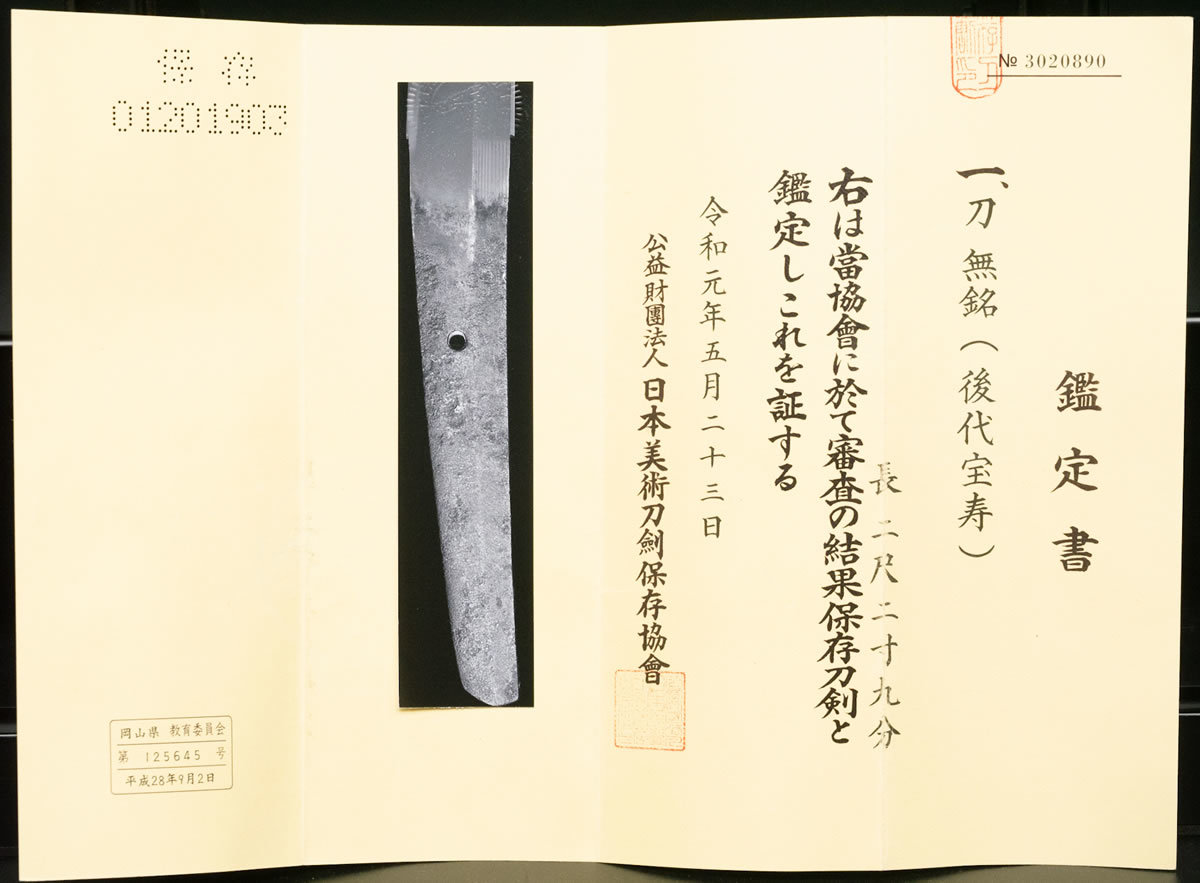 № 3020890
鑑定書
一、刀 無銘(後代宝寿)
長 二尺二寸九分
右は當協會に於て審査の結果保存刀剣と
鑑定しこれを証する
令和元年五月二十三日
公益財團法人 日本美術刀劍保存協會
保存
01201903
岡山県 教育委員会
第 125645 号
平成28年9月2日